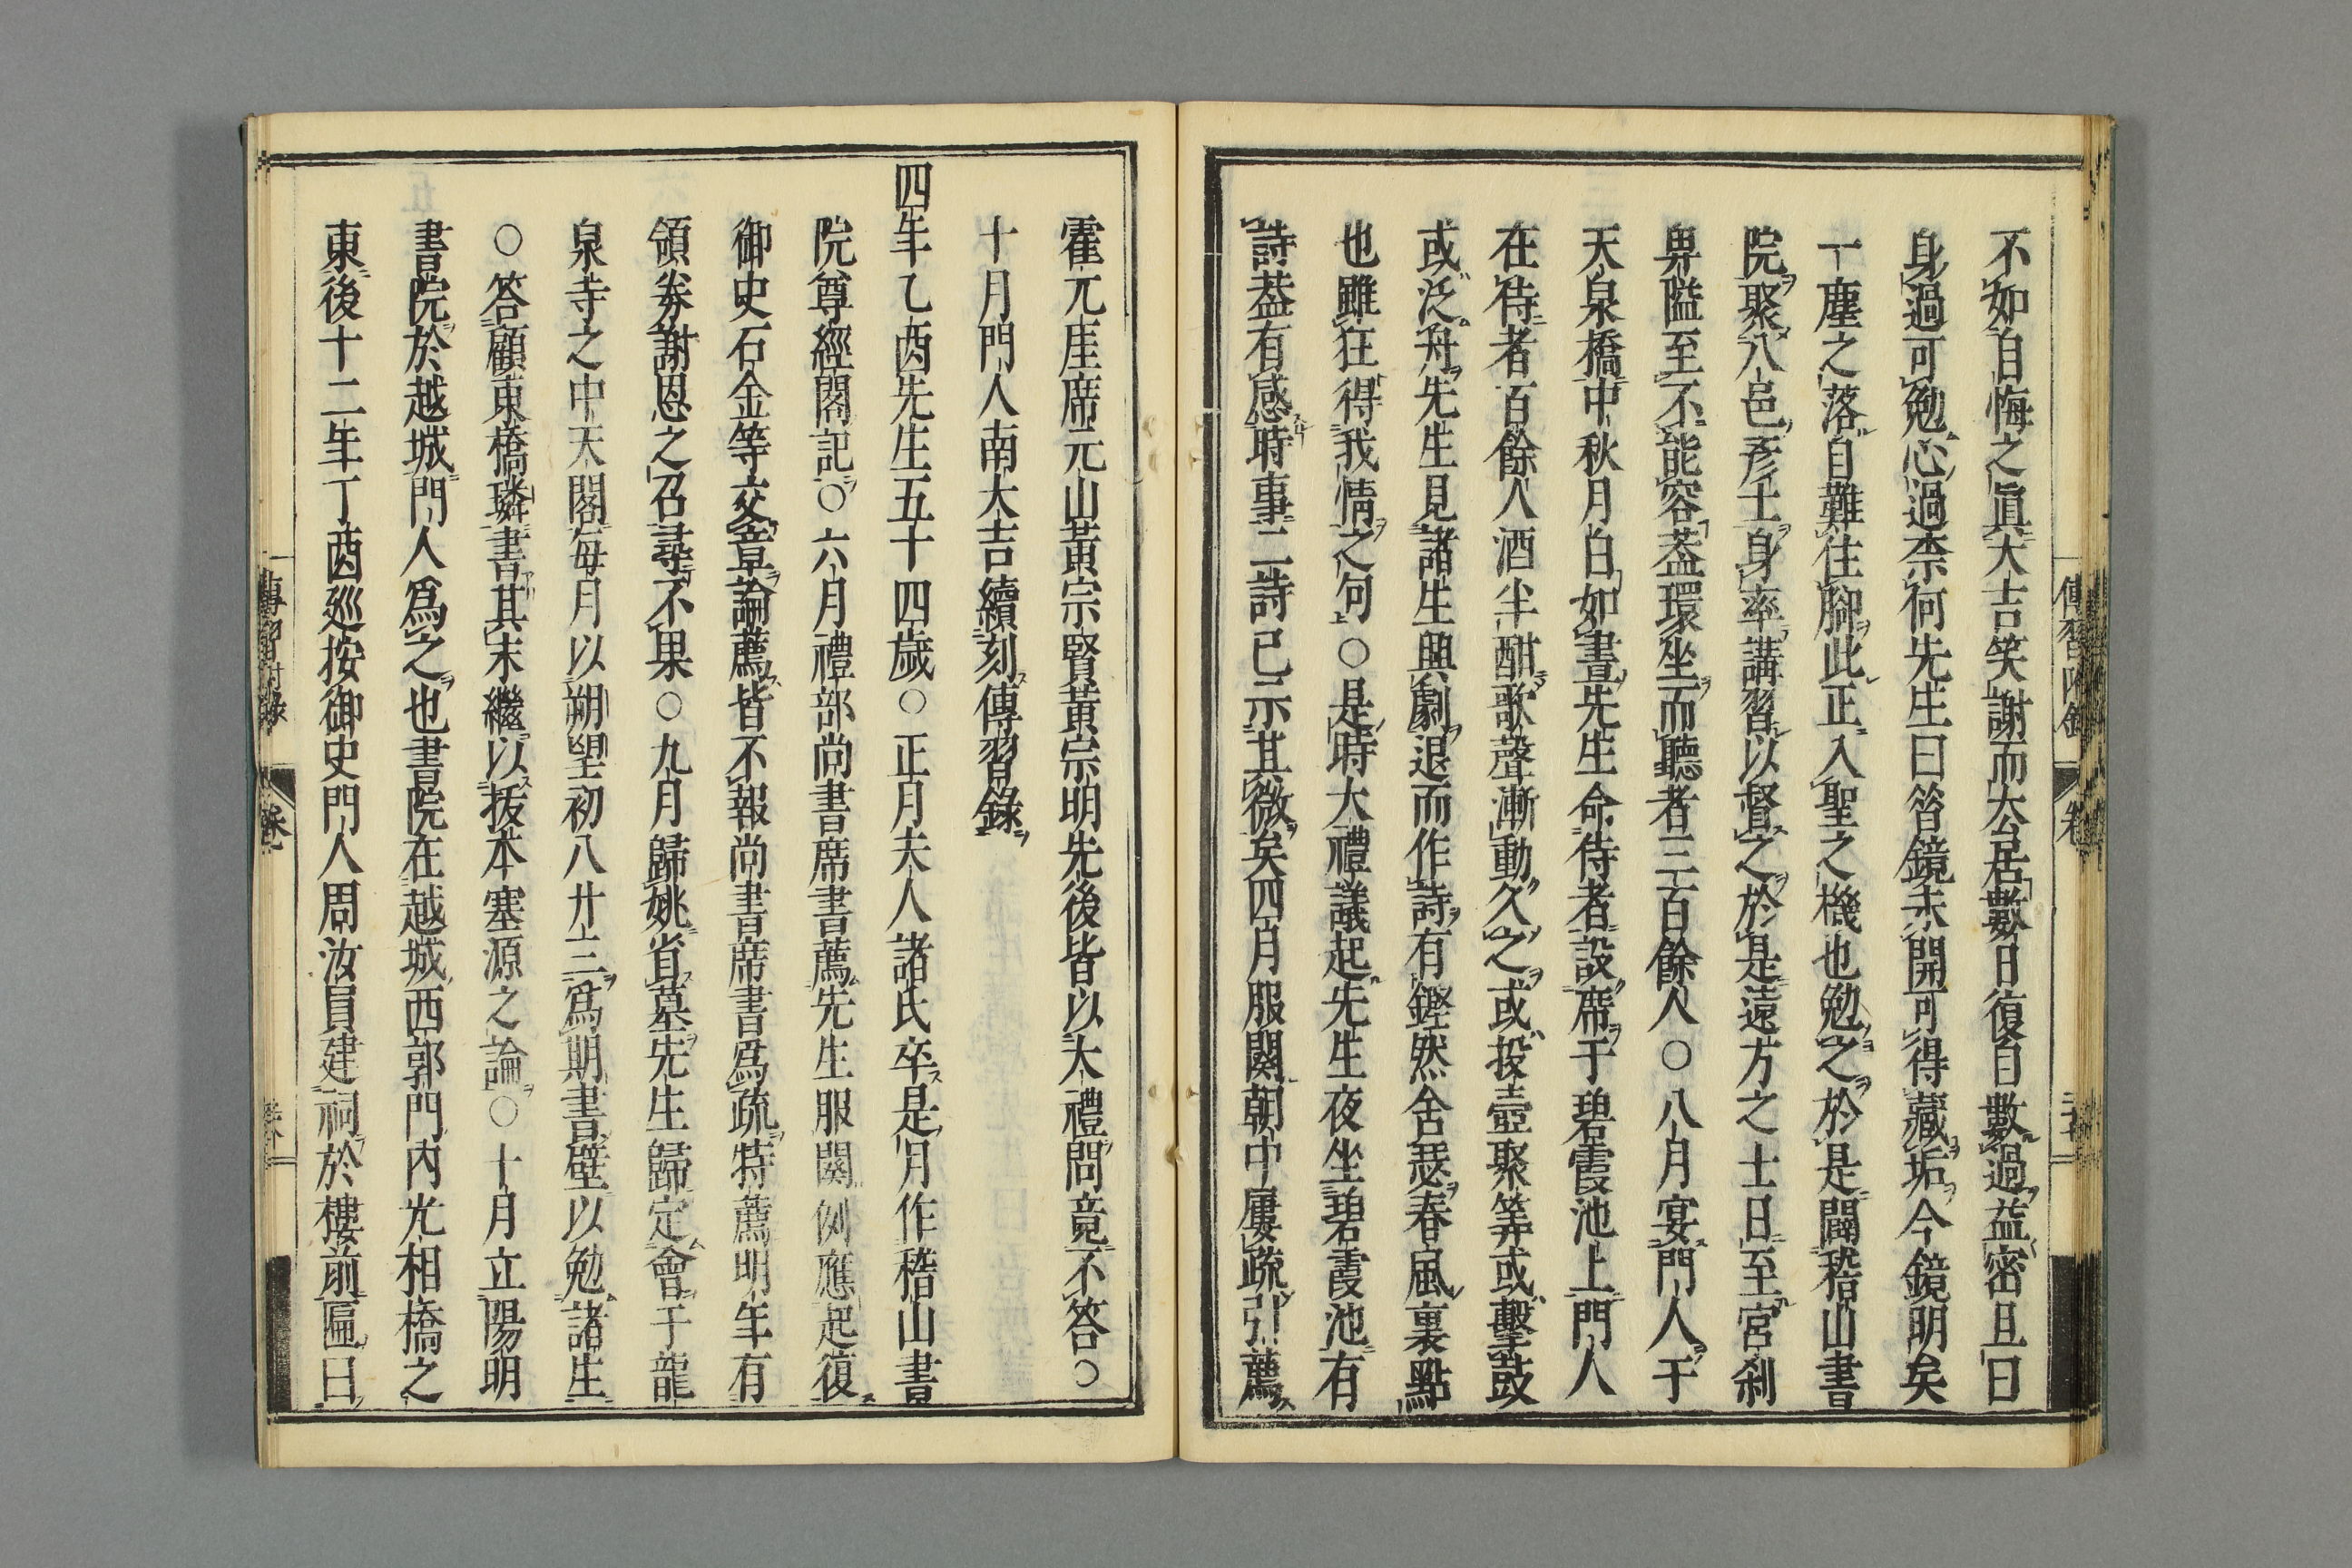 不如自悔之眞大吉笑謝而去居數日復自數過益密且曰
身過可勉心過柰何先生曰昔鏡未開可得藏垢今鏡明矣
一塵之落自難住脚此正入聖之機也勉之於是闢稽山書
院聚八邑彦士身率講習以督之於是遠方之士日至宮刹
卑隘至不能容葢環坐而聽者三百餘人○八月宴門人于
天泉橋中秋月白如晝先生命侍者設席于碧霞池上門人
在侍者百餘人酒半酣歌聲漸動久之或投壺聚筭或擊鼓
或泛舟先生見諸生興劇退而作詩有鏗然舍瑟春風裏點
也雖狂得我情之句○是時大禮議起先生夜坐碧霞池有
詩葢有感時事二詩已示其微矣四月服闋朝中屢疏引薦
霍兀崖席元山黃宗賢黃宗明先後皆以大禮問竟不答○
十月門人南大吉續刻傳習錄
四年乙酉先生五十四歲○正月夫人諸氏卒是月作稽山書
院尊經閣記○六月禮部尚書席書薦先生服闋例應起復
御史石金等交章論薦皆不報尚書席書爲疏特薦明年有
領券謝恩之召尋不果○九月歸姚省墓先生歸定會于龍
泉寺之中天閣每月以朔望初八廿三爲期書壁以勉諸生
○答顧東橋璘書其末繼以拔本塞源之論○十月立陽明
書院於越城門人爲之也書院在越城西郭門內光相橋之
東後十二年丁酉巡按御史門人周汝員建祠於樓前匾曰